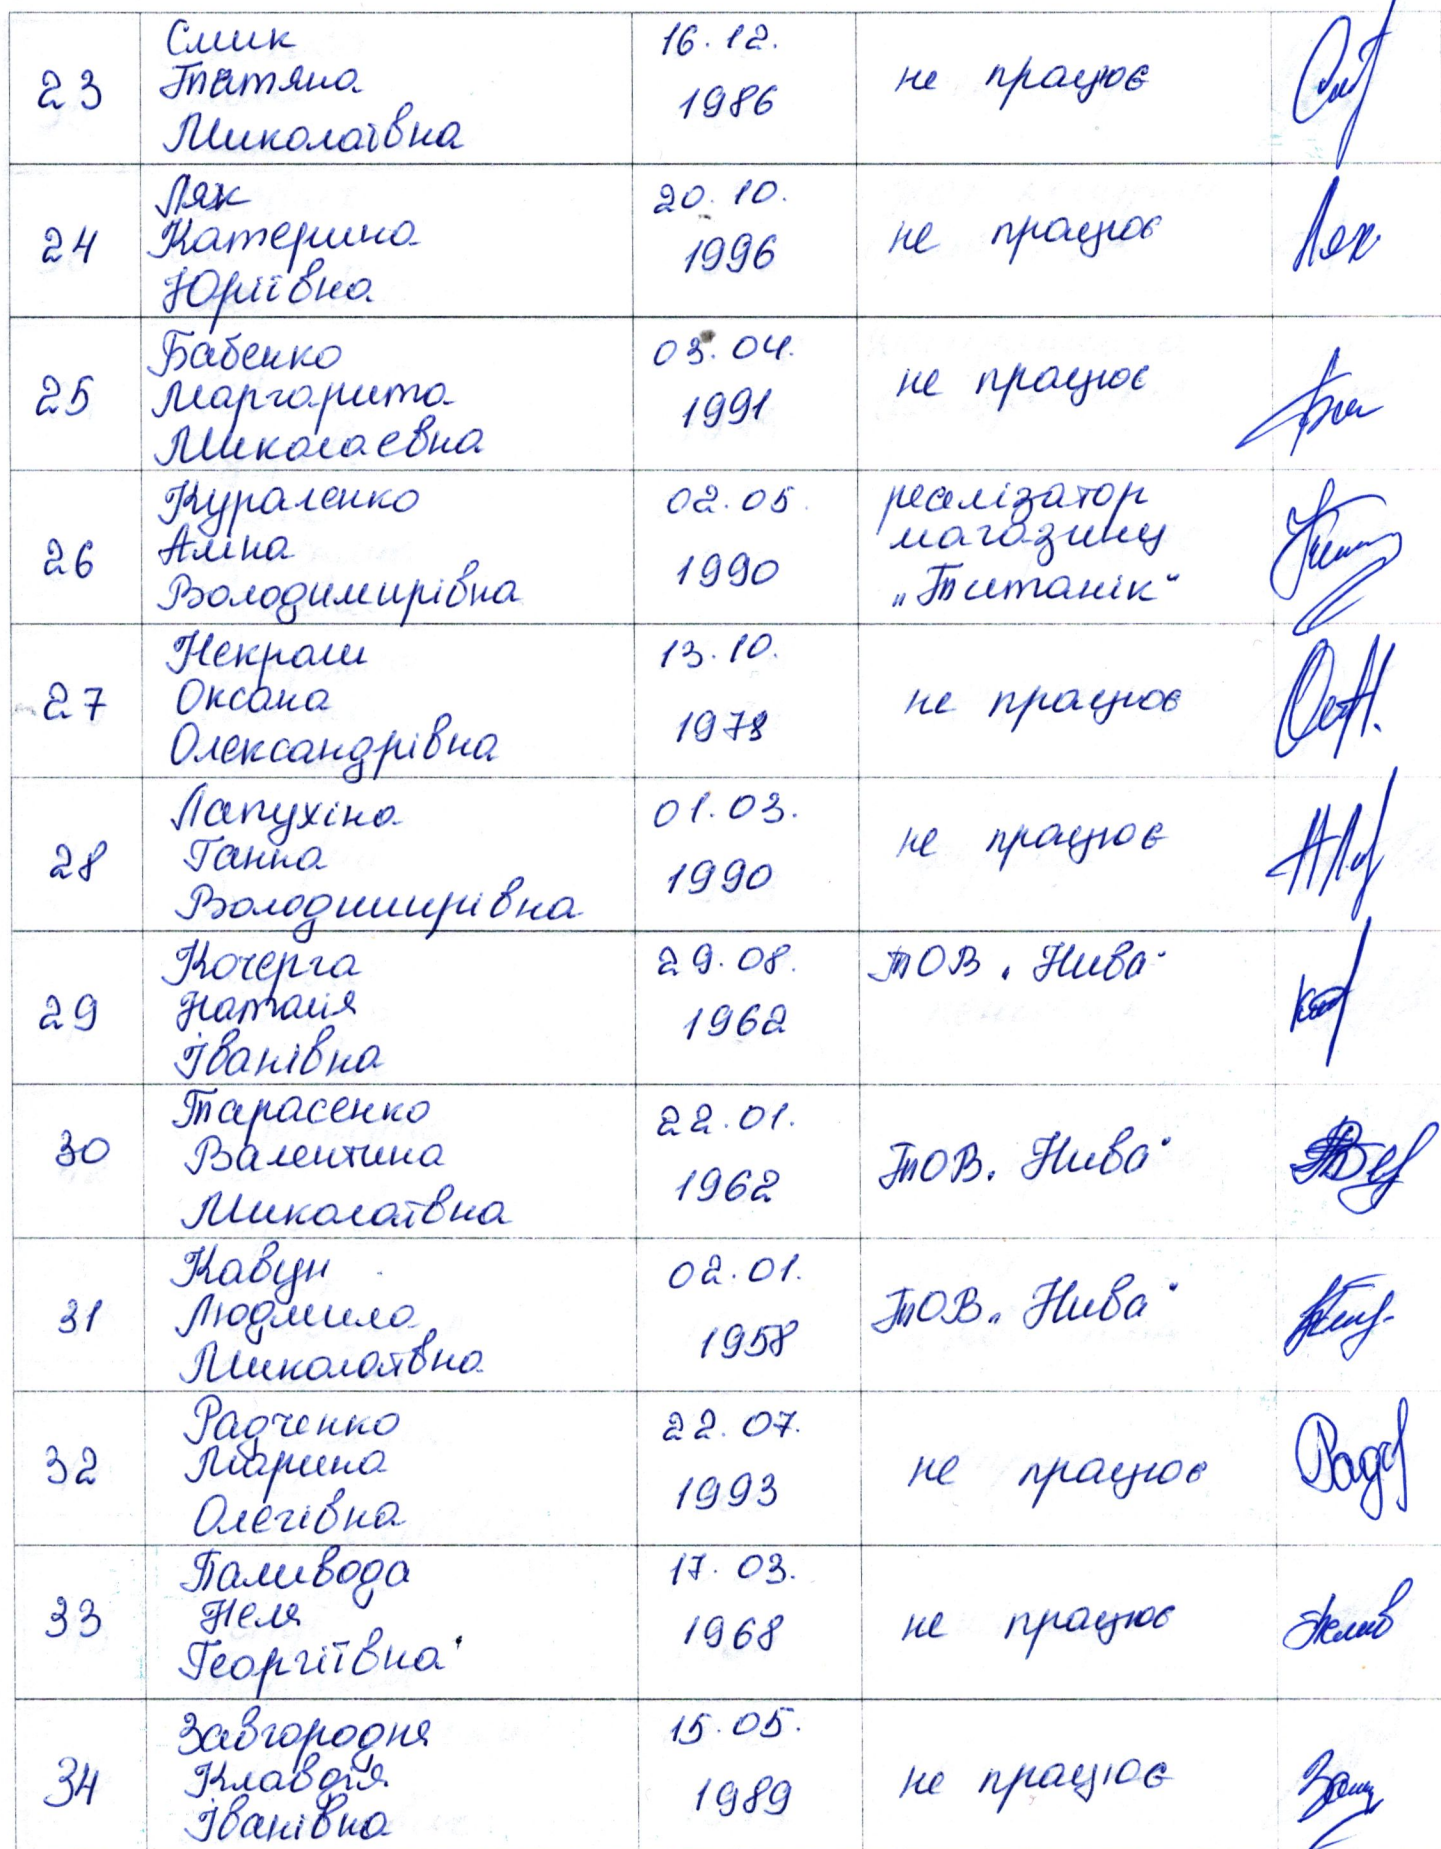 23
Смик
Тетяна
Миколаївна
16.12.
1986
не працює
24
Лях
Катерина
Юріївна
20.10.
1996
не працює
Лях
25
Бабенко
Маргарита
Миколаєвна
03.04.
1991
не працює
26
Кураленко
Аліна
Володимирівна
02.05.
1990
реалізатор
магазину
„Титанік"
27
Некраш
Оксана
Олександрівна
13.10.
1978
не працює
28
Лапухіна
Ганна
Володимирівна
01.03.
1990
не працює
29
Кочерга
Наталія
Іванівна
29.08.
1962
ТОВ „Нива"
30
Тарасенко
Валентина
Миколаївна
22.01.
1962
ТОВ „Нива"
31
Кавун
Людмила
Миколаївна
02.01.
1958
ТОВ „Нива"
32
Радченко
Марина
Олегівна
22.07.
1993
не працює
33
Паливода
Неля
Георгіївна
17.03.
1968
не працює
34
Завгородня
Клавдія
Іванівна
15.05.
1989
не працює